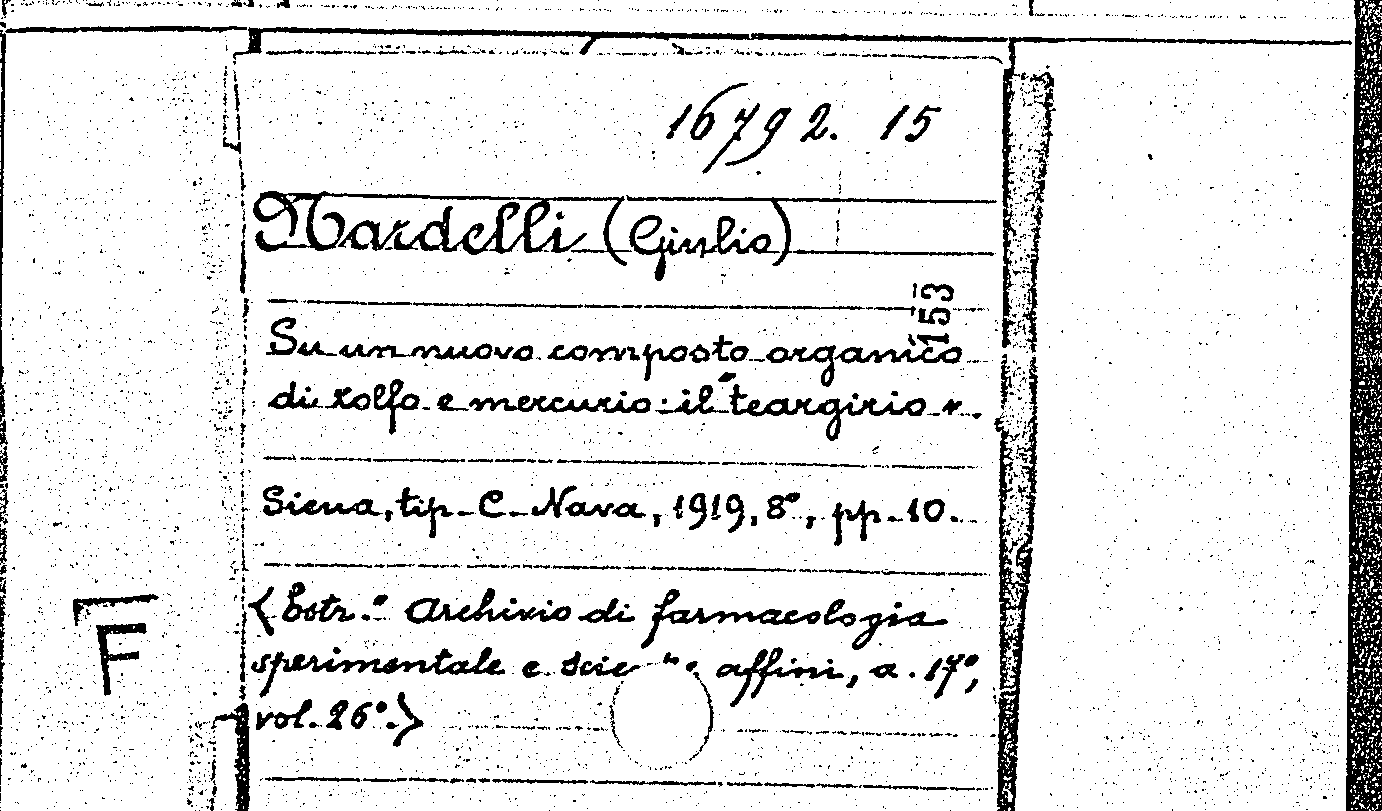 16792. 15
Nardelli (Giulio)
153
Su un nuovo composto organico
di zolfo e mercurio: il "teargirio".
Siena, tip. C. Nava, 1919, 8°, pp. 10.
< Estr.° Archivio di farmacologia
F
sperimentale e affini, a. 17°,
vol. 26°.>